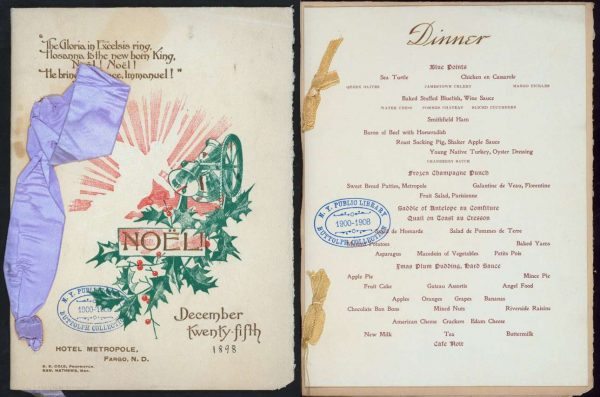 "The Gloria in Excelsis ring,
Hosanna to the new born King,
Noël! Noël!
He brings Immanuel!"
NOËL!
N. Y. PUBLIC LIBRARY
1900-1908
BUTTOLPH COLLECTION
December
twenty-fifth
1898
HOTEL METROPOLE,
FARGO, N. D.
Dinner
Blue Points
Sea Turtle Chicken en Casserole
QUEEN OLIVES JAMESTOWN CELERY MANGO PICKLES
Baked Stuffed Bluefish, Wine Sauce
WATER CRESS POMMES CHATEAU SLICED CUCUMBERS
Smithfield Ham
Baron of Beef with Horseradish
Roast Sucking Pig, Shaker Apple Sauce
Young Native Turkey, Oyster Dressing
CRANBERRY BATCH
Frozen Champagne Punch
Sweet Bread Patties, Metropole Galantine de Veau, Florentine
Fruit Salad, Parisienne
Saddle of Antelope au Comfiture
Quail on Toast au Cresson
N. Y. PUBLIC LIBRARY
1900-1908
BUTTOLPH COLLECTION
de Homarde Salad de Pommes de Terre
Potatoes Baked Yams
Asparagus Macedoin of Vegetables Petits Pois
Xmas Plum Pudding, Hard Sauce
Apple Pie Mince Pie
Fruit Cake Gateau Assortis Angel Food
Apples Oranges Grapes Bananas
Chocolate Bon Bons Mixed Nuts Riverside Raisins
American Cheese Crackers Edam Cheese
New Milk Tea Buttermilk
Cafe Noir